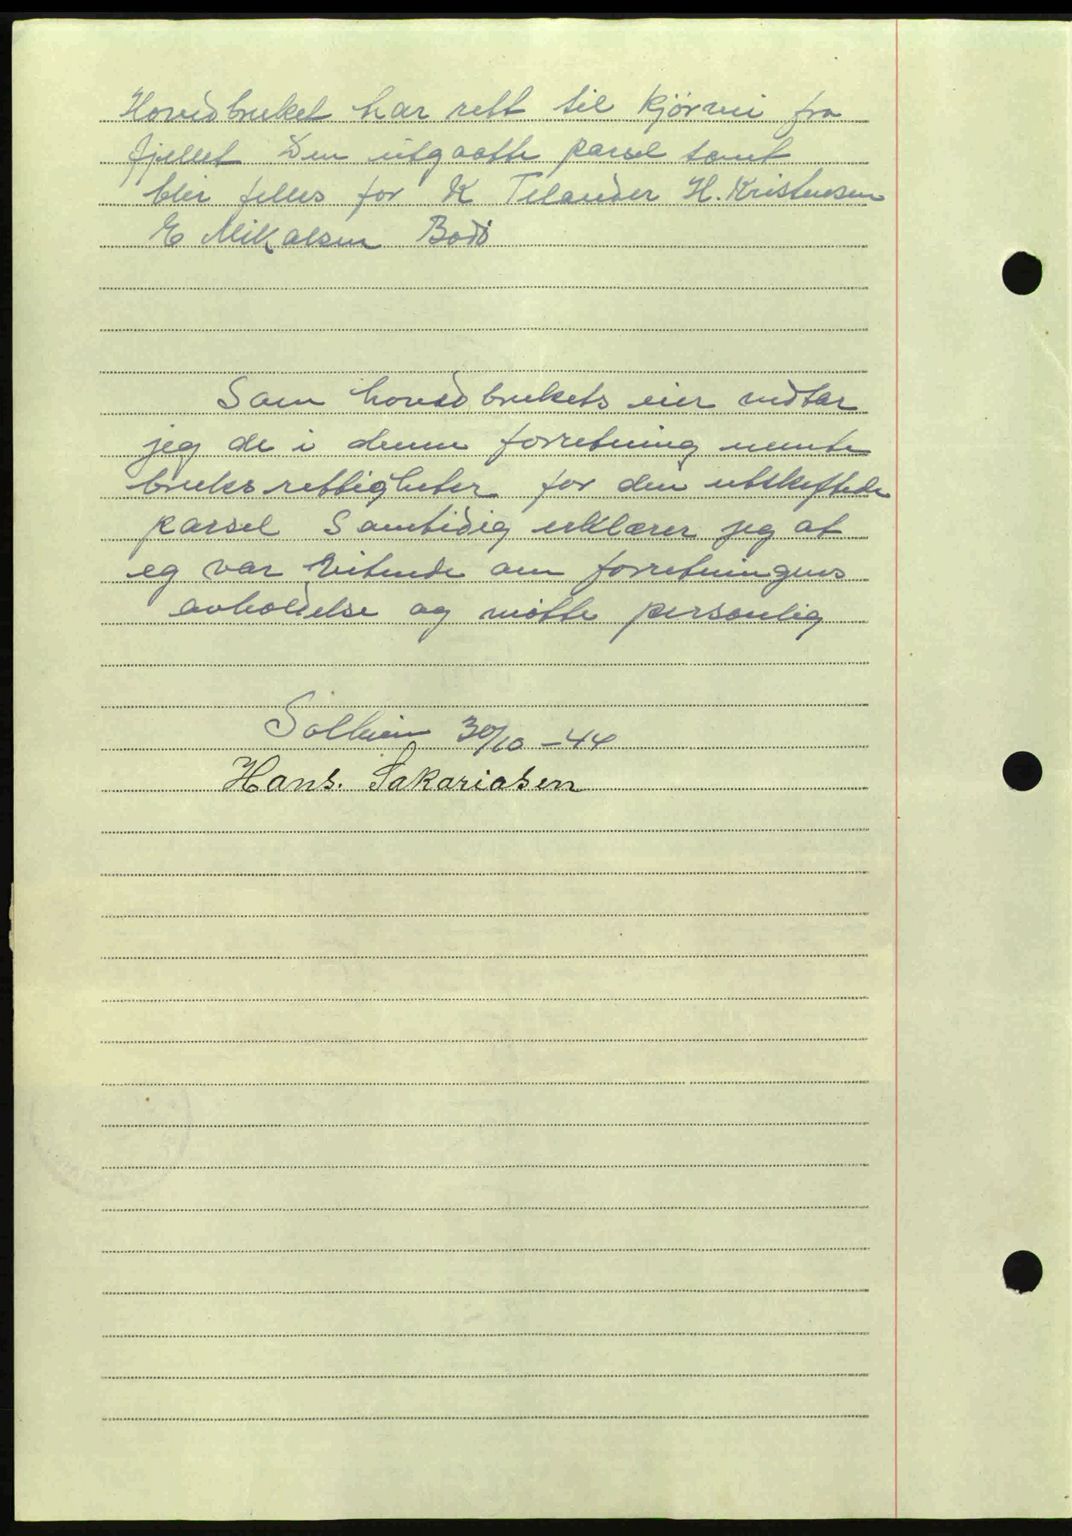 Hovedbruket har rett til kjörvei fra
fjellet Den utgaatte parsel samt
blir felles for K Telander H. Kristensen
E Mikalsen Bodö
Som hovedbrukets eier vedtar
jeg de i denne forretning nemte
bruksrettigheter for den utskiftede
parsel Samtidig erklærer jeg at
eg var vitende om forretningens
avholdelse og mötte personlig
Solheim 30/10 -44
Hans. Sakariasen